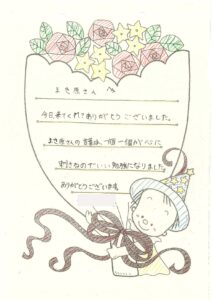 まき原さんへ
今日、来てくれてありがとうございました。
まき原さんの言葉は、一個一個が心に
刺さるのでいい勉強になりました。
ありがとうございます